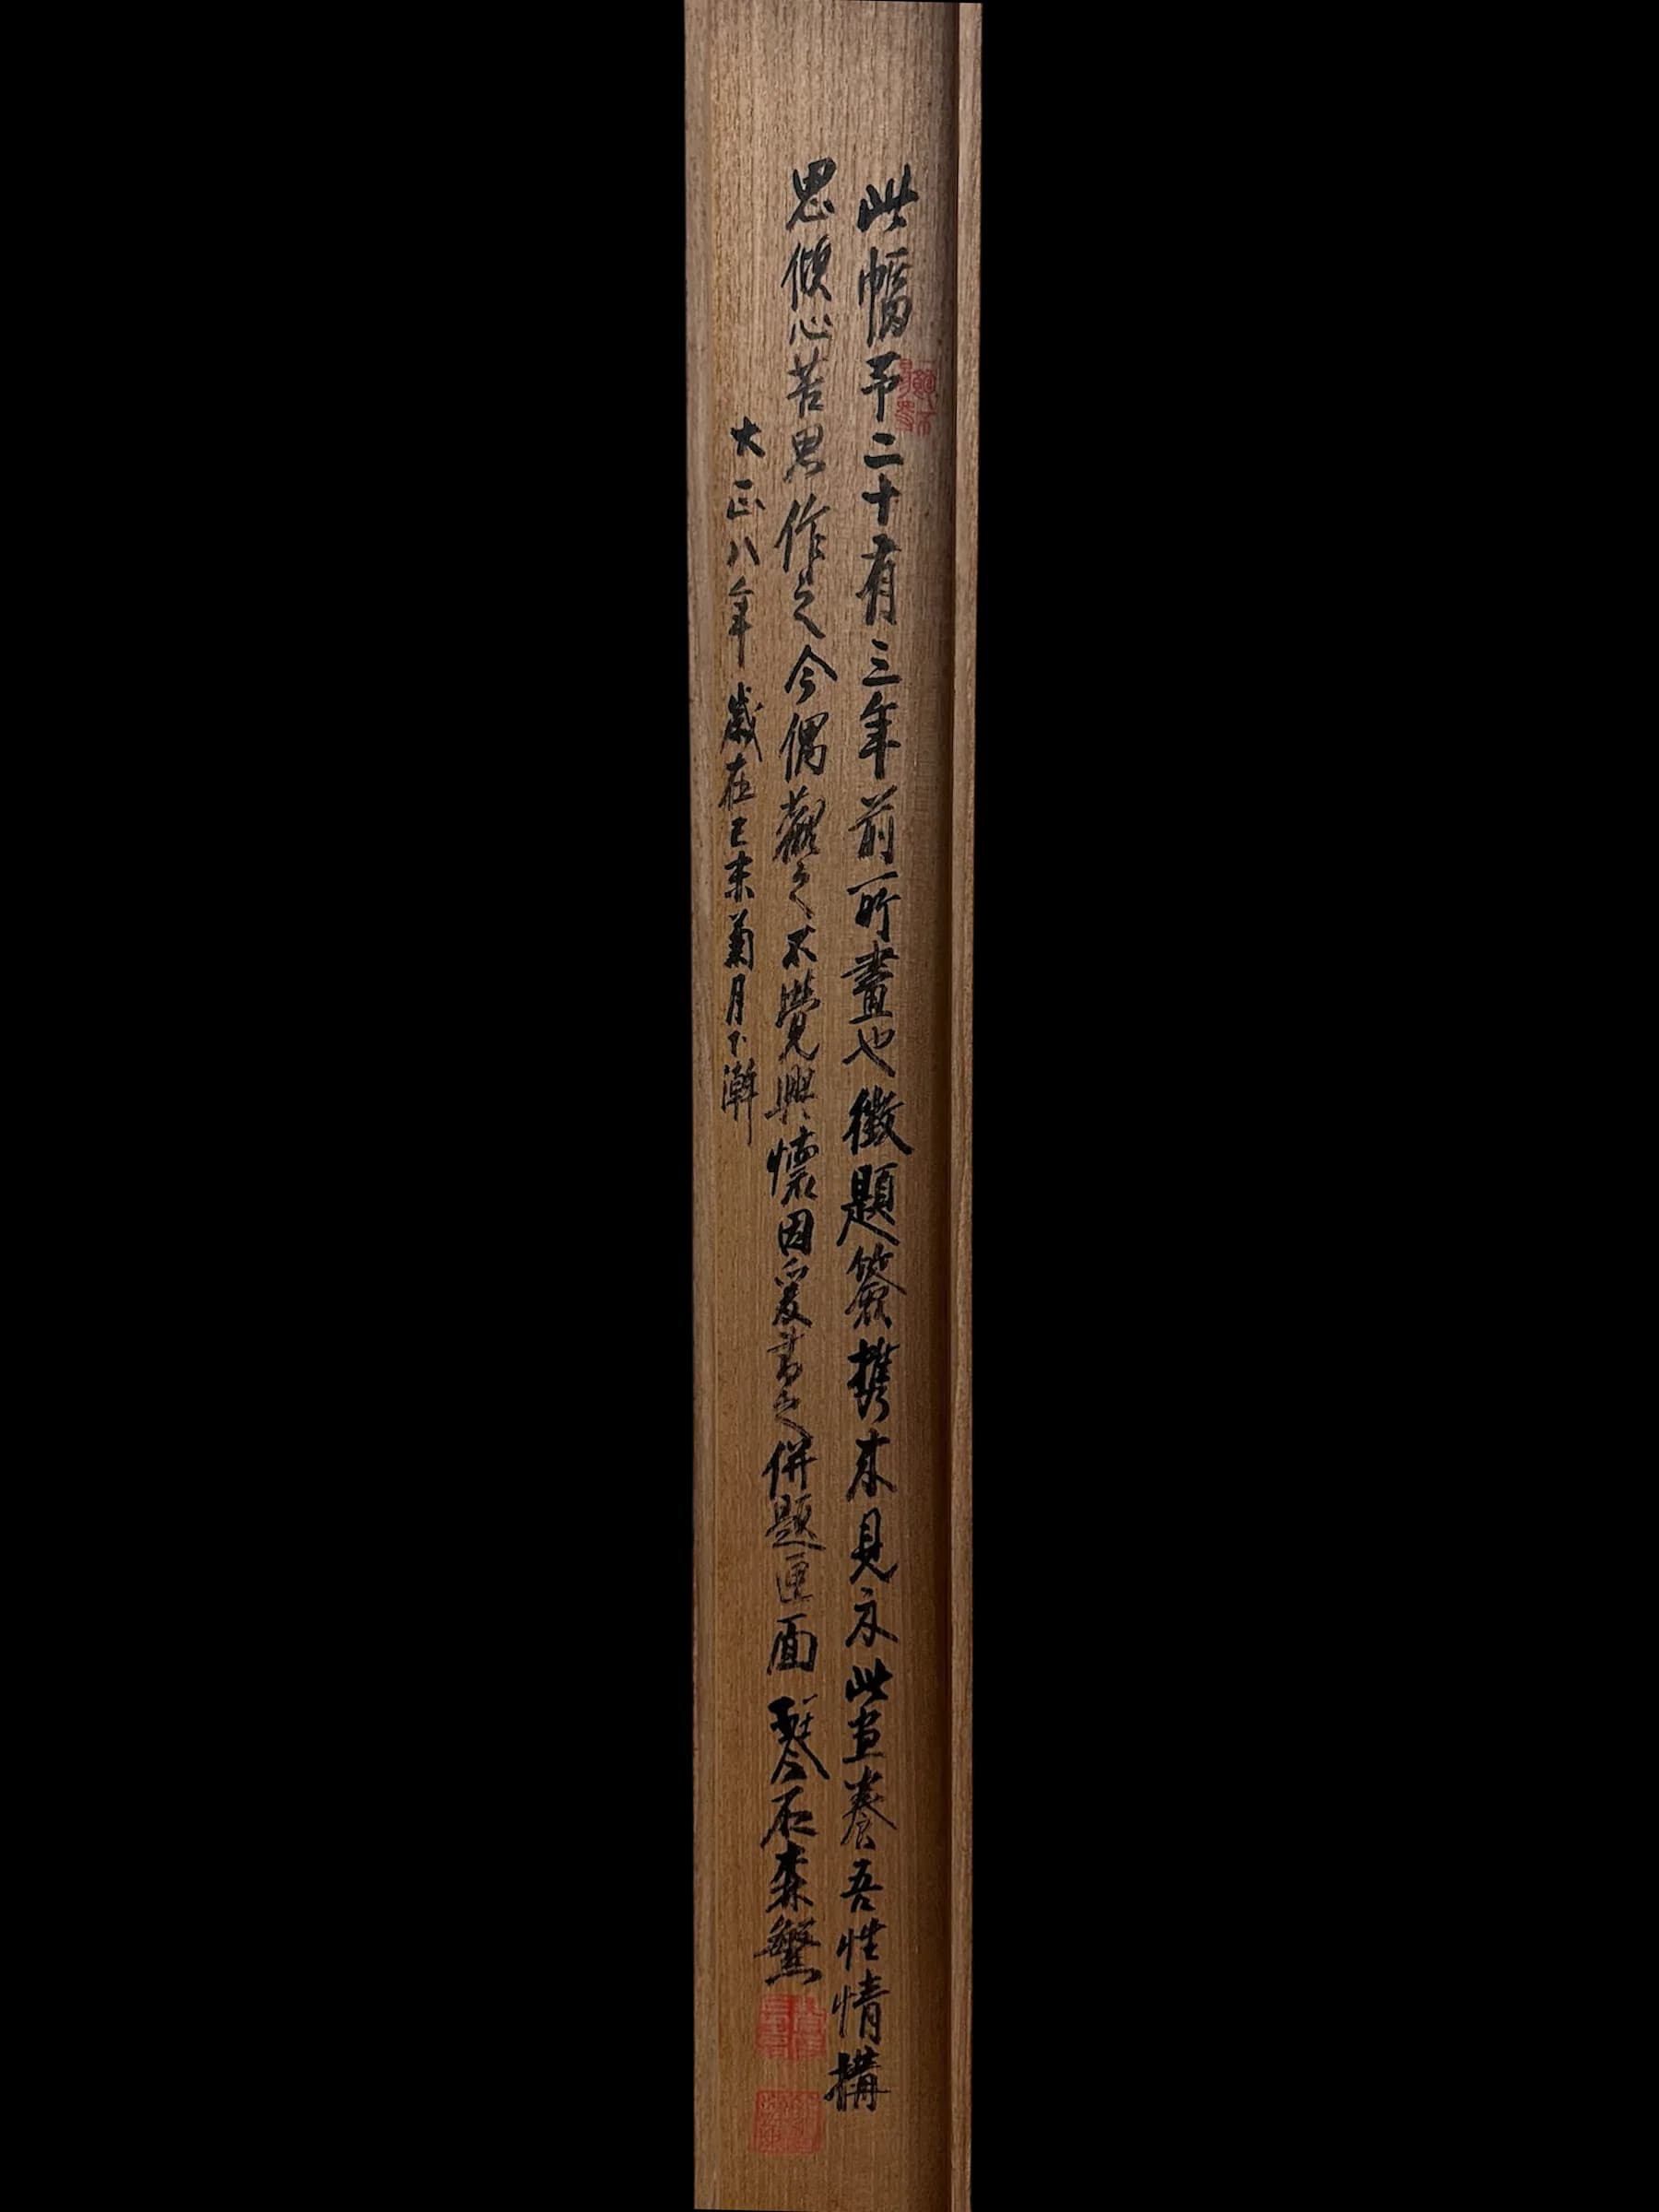 此幅予二十有三年前所畫也徵題簽携来見示此画養吾性情構
思傾心苦思作之今偶觀之不覺興懷因爰書之併題匣面 琴石森繁
大正八年歳在己未菊月下澣